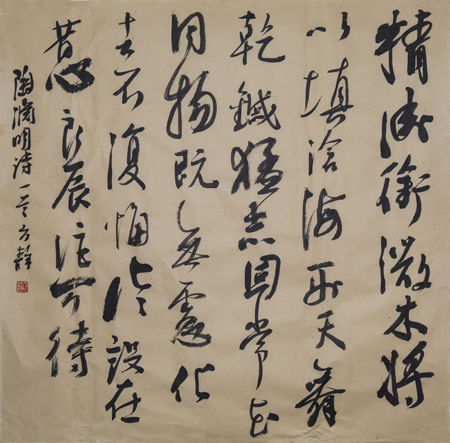 精衛銜微木將
以填滄海形天舞
乾鏚猛志固常在
同物既無慮化
去不復悔徒設在
昔心良辰詎可待
陶淵明詩一